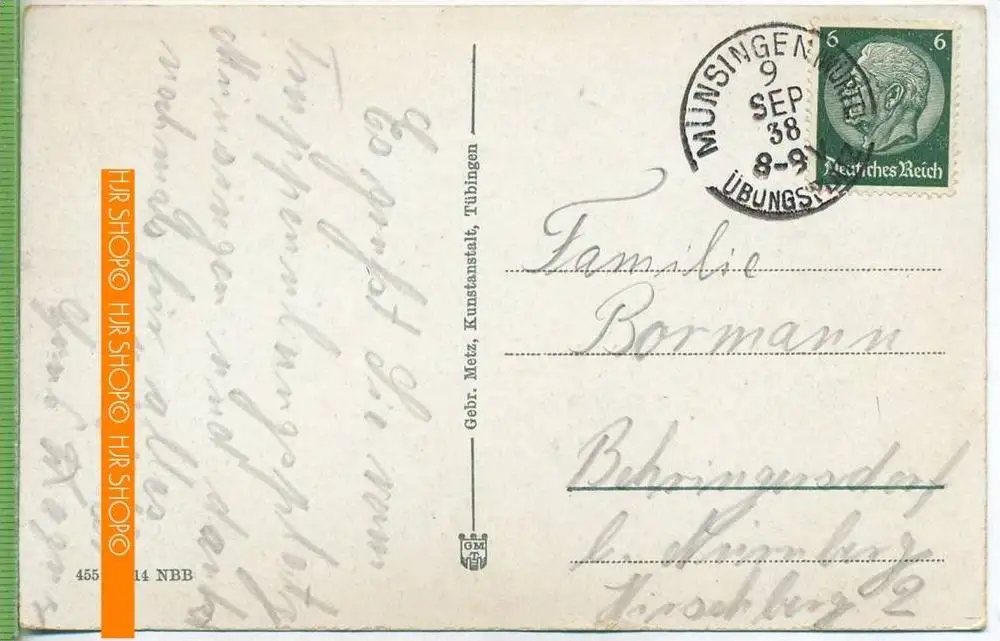 Es grüßt Sie vom
Truppenübungsplatz
Münsingen und dankt
nochmals für alles
Gebr. Metz, Kunstanstalt, Tübingen
GM
T
455 14 NBB
MÜNSINGEN (WÜRTT)
9
SEP
38
8-9
ÜBUNGSPL
6 6
Deutsches Reich
Familie
Bormann
Behringersdorf
b. Nürnberg
Hirschberg 2
HJR SHOP© HJR SHOP© HJR SHOP©